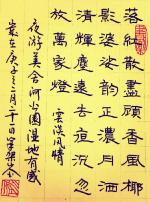 落紅散盡顧香風椰
影婆娑韵正濃月洒
清輝塵遠去夜沉忽
放萬家燈 雲淡風情
夜游美舍河公園湿地有感
歲在庚子三月二十日